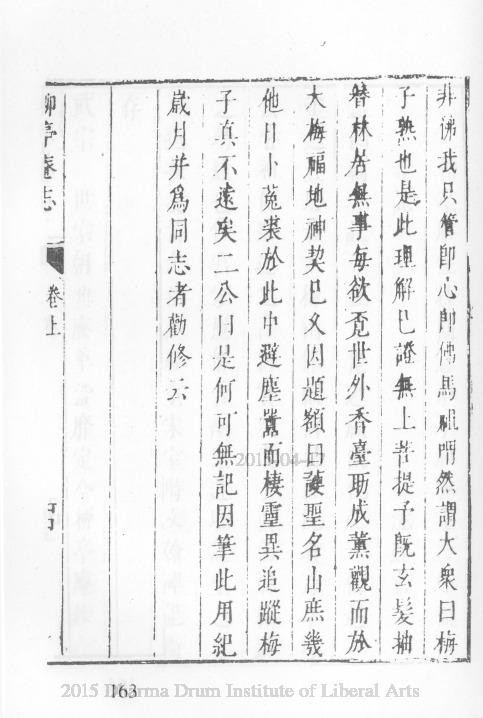 非佛我只管即心即佛馬祖喟然謂大衆曰梅
子熟也是此理解已證無上菩提予既玄髮抽
簪林居無事每欲覓世外香臺助成薰觀而於
大梅福地神契已久因題額曰護聖名山庶幾
他日卜菟裘於此中避塵囂而棲靈異追蹤梅
子真不遠矣二公曰是何可無記因筆此用紀
歲月并爲同志者勸修云
亭菴志
卷上
2015-04-17
163
2015 Dharma Drum Institute of Liberal Arts